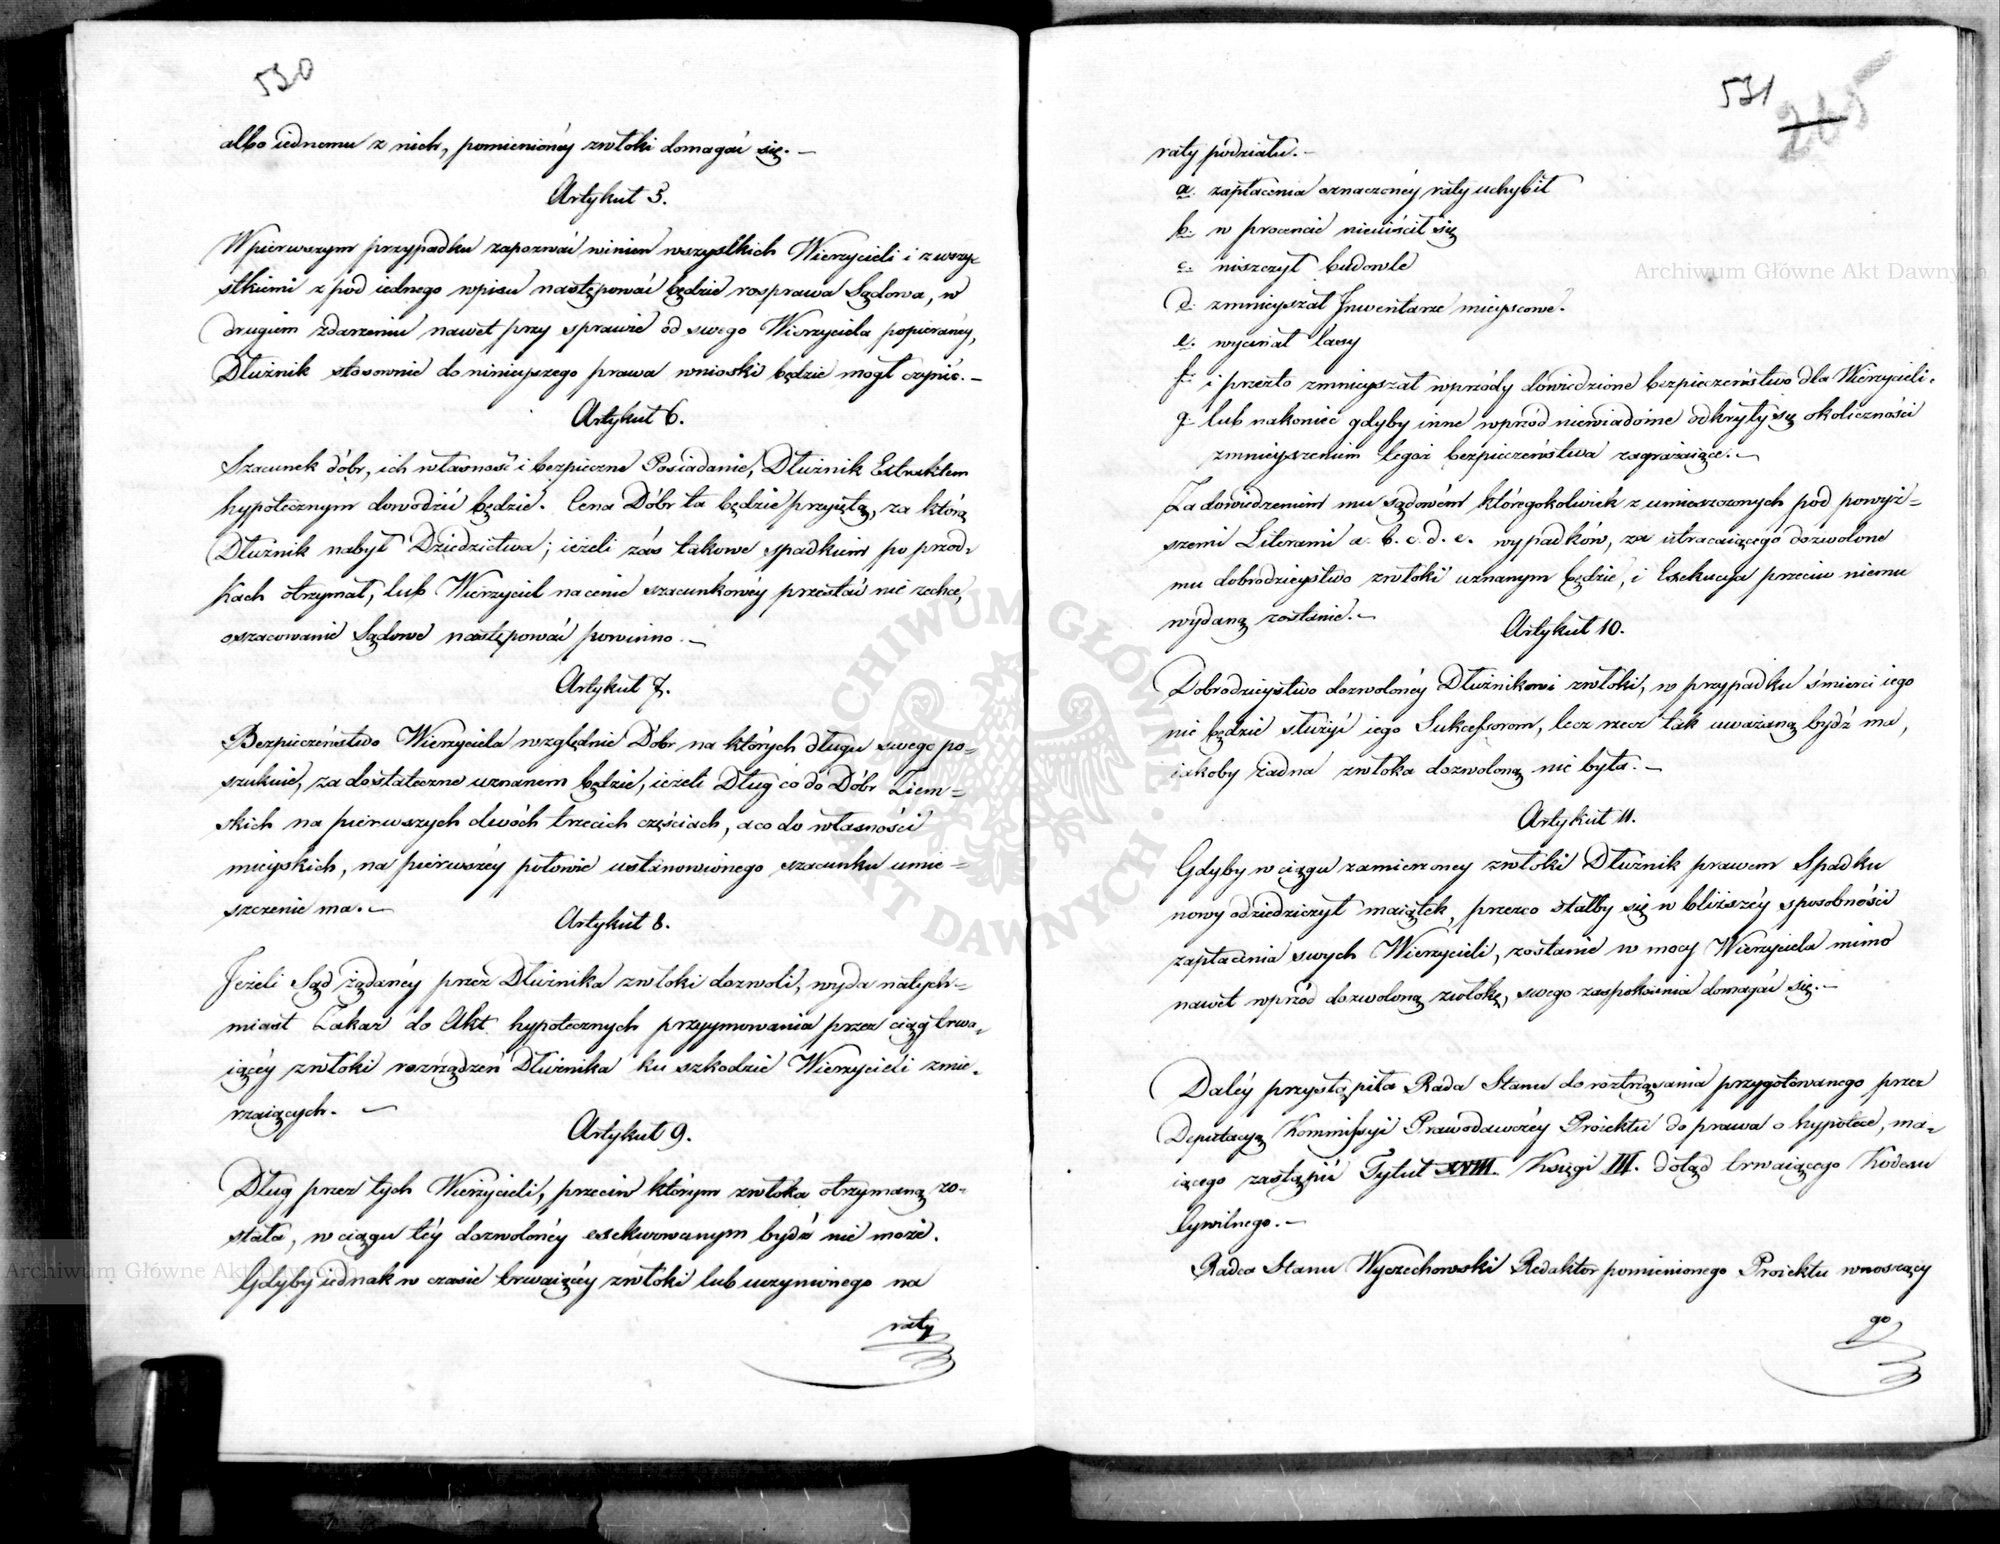 530
albo iednemu z nich, pomienionéy zwłoki domagać się. —
Artykuł 5.
W pierwszym przypadku zapozwać winien wszystkich Wierzycieli i z wszy-
stkiemi z pod iednego wpisu następować będzie rosprawa Sądowa, w
drugiem zdarzeniu nawet przy sprawie od swego Wierzyciela popieranéy,
Dłużnik stosownie do ninieyszego prawa wnioski będzie mógł czynić. —
Artykuł 6.
Szacunek dóbr, ich własność i bezpieczne Posiadanie, Dłużnik Extraktem
hypotecznym dowodzić będzie. Cena Dóbr ta będzie przyiętą, za którą
Dłużnik nabył Dziedzictwa; ieżeli zaś takowe spadkiem po przod-
kach otrzymał, lub Wierzyciel na cenie szacunkowéy przestać nie zechce,
oszacowanie Sądowe następować powinno. —
Artykuł 7.
Bezpieczeństwo Wierzyciela względnie Dóbr na których długu swego po-
szukuie, za dostateczne uznanem będzie, ieżeli Dług co do Dóbr Ziem-
skich na pierwszych dwóch trzecich częściach, a co do własności
mieyskich, na pierwszéy połowie ustanowionego szacunku umie-
szczenie ma. —
Artykuł 8.
Jeżeli Sąd żądanéy przez Dłużnika zwłoki dozwoli, wyda natych-
miast Zakaz do Akt hypotecznych przyymowania przez ciąg trwa-
iącéy zwłoki rozrządzeń Dłużnika ku szkodzie Wierzycieli zmie-
rzaiących. —
Artykuł 9.
Dług przez tych Wierzycieli, przeciw którym zwłoka otrzymaną zo-
stała, w ciągu téy dozwolonéy exekwowanym bydź nie może.
Gdyby iednak w czasie trwaiącéy zwłoki lub uczynionego na
raty
531
265
raty podziału. —
a. zapłacenia oznaczonéy raty uchybił
b. w procencie nieuiścił się
c. niszczył budowle
d. zmnieyszał Inwentarze mieyscowe.
e. wycinał lasy
f. i przeto zmnieyszał wprzódy dowiedzione bezpieczeństwo dla Wierzycieli.
g. lub nakoniec gdyby inne wprzód niewiadome odkryły się okoliczności
zmnieyszeniem tegoż bezpieczeństwa zagrażaiące. —
Za dowiedzeniem mu sądowem któregokolwiek z umieszczonych pod powyż-
szemi Literami a. b. c. d. e. wypadków, za utracaiącego dozwolone
mu dobrodzieystwo zwłoki uznanym będzie, i Exekucya przeciw niemu
wydaną zostanie. —
Artykuł 10.
Dobrodzieystwo dozwolonéy Dłużnikowi zwłoki, w przypadku śmierci iego
nie będzie służyć iego Sukcessorom, lecz rzecz tak uważaną bydź ma,
iakoby żadna zwłoka dozwoloną nie była. —
Artykuł 11.
Gdyby w ciągu zamierzonéy zwłoki Dłużnik prawem Spadku
nowy odziedziczył maiątek, przezco stałby się w bliższéy sposobności
zapłacenia swych Wierzycieli, zostanie w mocy Wierzyciela mimo
nawet wprzód dozwoloną zwłokę, swego zaspokoienia domagać się. —
Daléy przystąpiła Rada Stanu do roztrząsania przygotowanego przez
Deputacyą Kommissyi Prawodawczéy Proiektu do prawa o hypotece, ma-
iącego zastąpić Tytuł XVIII. Księgi III. dotąd trwaiącego Kodexu
Cywilnego. —
Radca Stanu Wyczechowski Redaktor pomienionego Proiektu wnoszący
go
Archiwum Główne Akt Dawnych
Archiwum Główne Akt Dawnych
ARCHIWUM GŁÓWNE AKT DAWNYCH